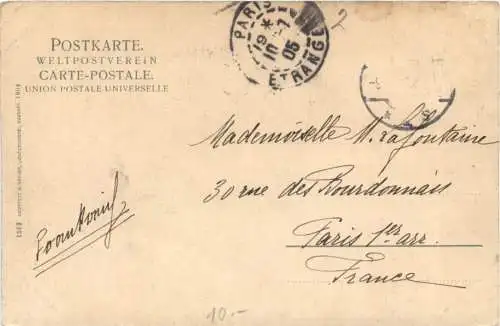 POSTKARTE.
WELTPOSTVEREIN
CARTE-POSTALE.
UNION POSTALE UNIVERSELLE
PARIS
19 *
10 -7
05
ETRANGER
2
Mademoiselle M. Lafontaine
30 rue des Bourdonnais
Paris 1er arr.
France
10.-